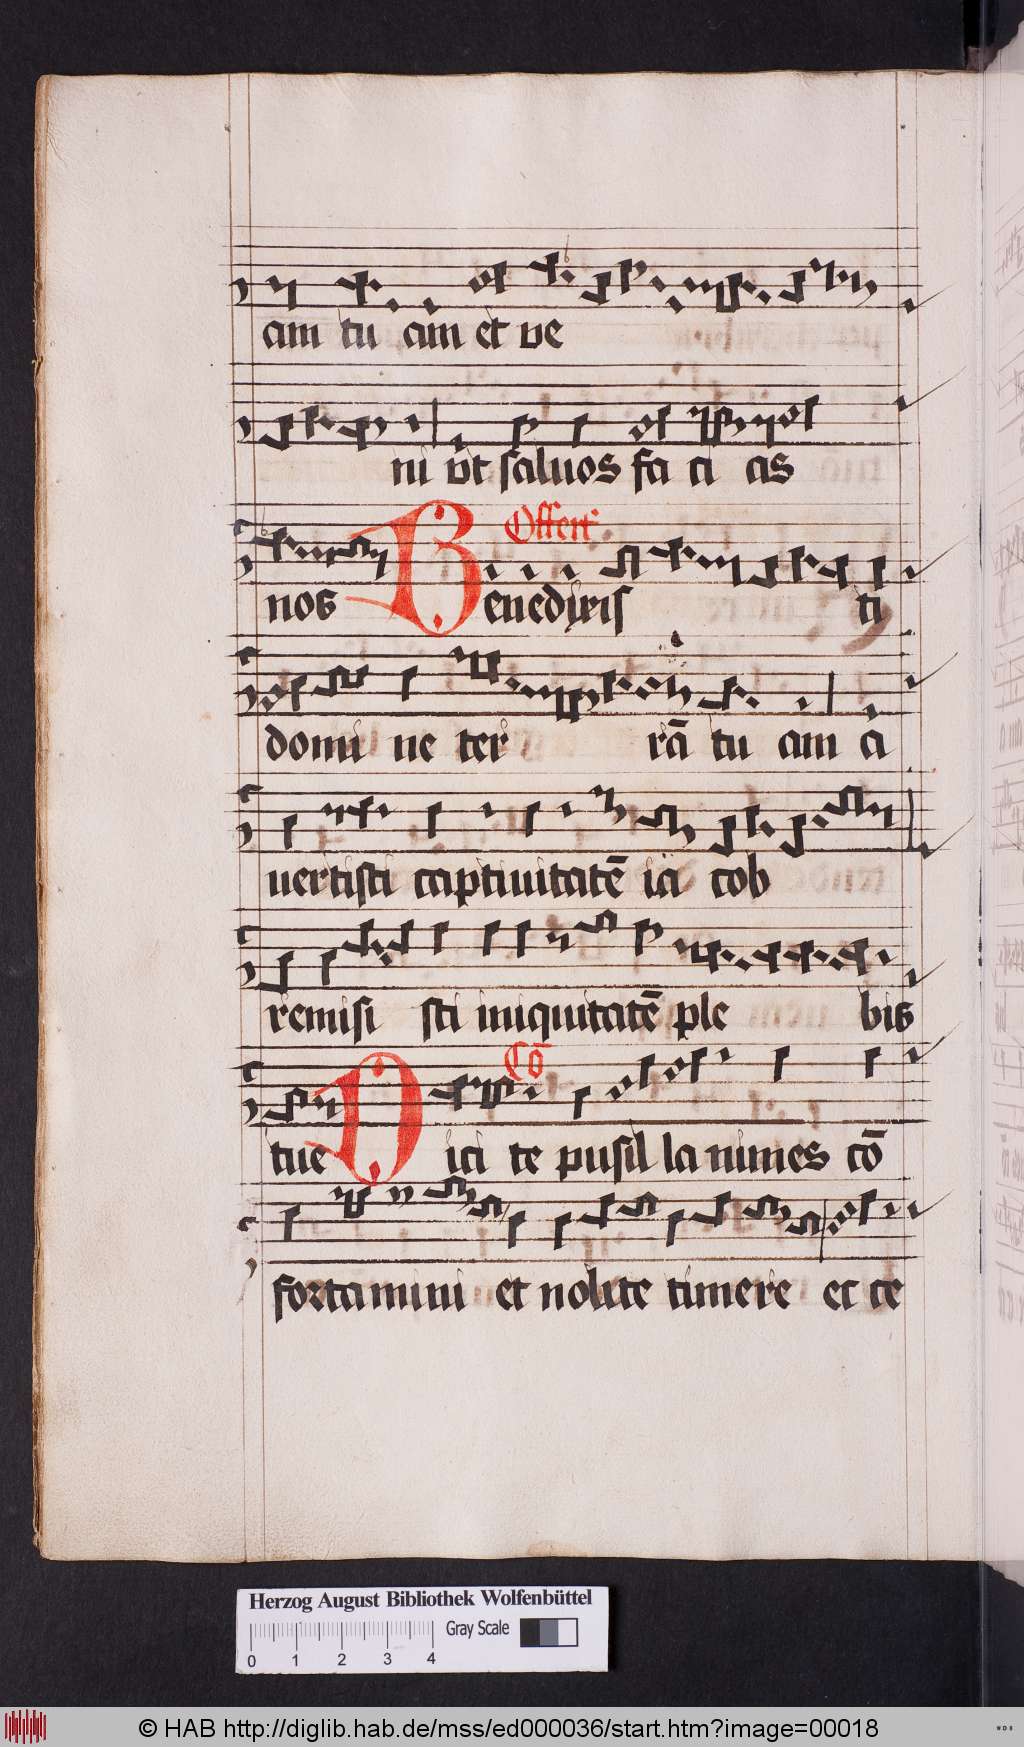 am tu am et ve
ni vt saluos fa ci as
Offert
nos Benedixisti
domi ne ter rā tu am a
uertisti captiuitatē ia cob
remisi sti iniquitatē ple bis
Cō
tue Dici te pusil la nimes cō
fortamini et nolite timere ec ce
Herzog August Bibliothek Wolfenbüttel
Gray Scale
0 1 2 3 4
© HAB http://diglib.hab.de/mss/ed000036/start.htm?image=00018